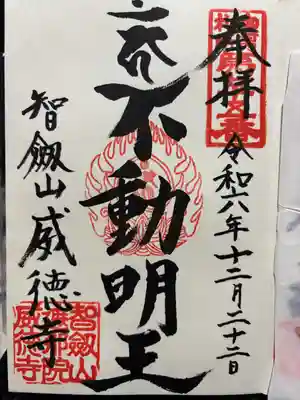 奉拝
令和六年十二月二十二日
不動明王
智劔山威徳寺
智劔山
威徳寺